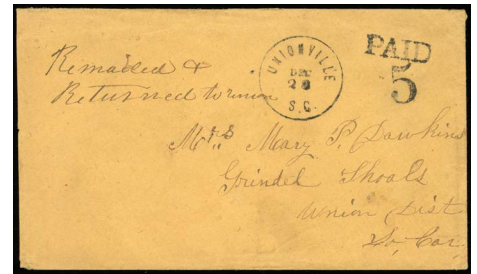 Remailed &
Returned to union
UNIONVILLE
DEC
29
S.C.
PAID
5
Mrs. Mary P. Dawkins
Grindel Shoals
Union Dist
So, Car.